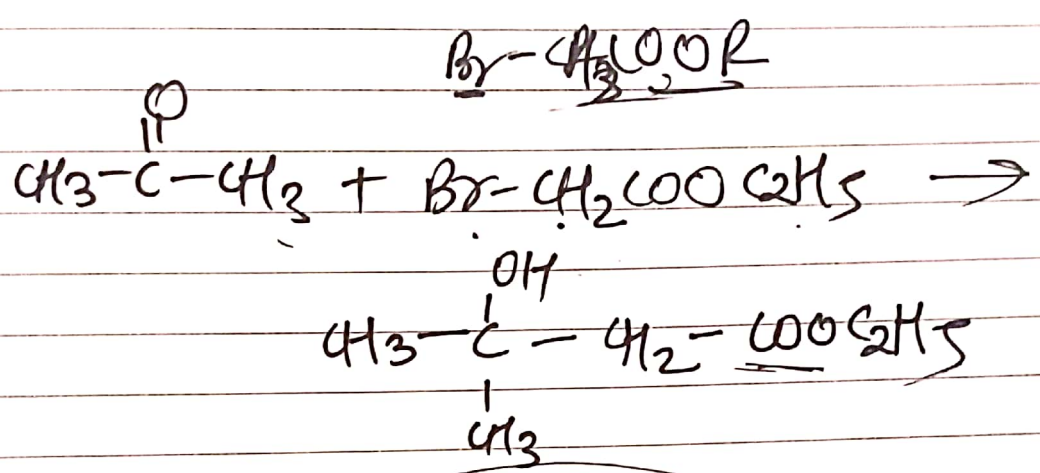 Br-CH2COOR
O
CH3-C-CH3 + Br-CH2COOC2H5 →
OH
CH3-C-CH2-COOC2H5
CH3